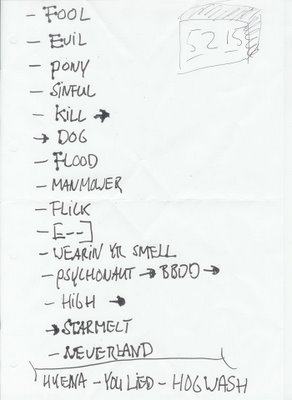 - FOOL
52 15
- EVIL
- PONY
- SINFUL
- KILL →
→ DOG
- FLOOD
- MANMOWER
- FLICK
- [E--]
- WEARIN YR SMELL
- PSYCHONAUT → BBDD →
- HIGH →
→ STARMELT
- NEVERLAND
HYENA - YOU LIED - HOGWASH